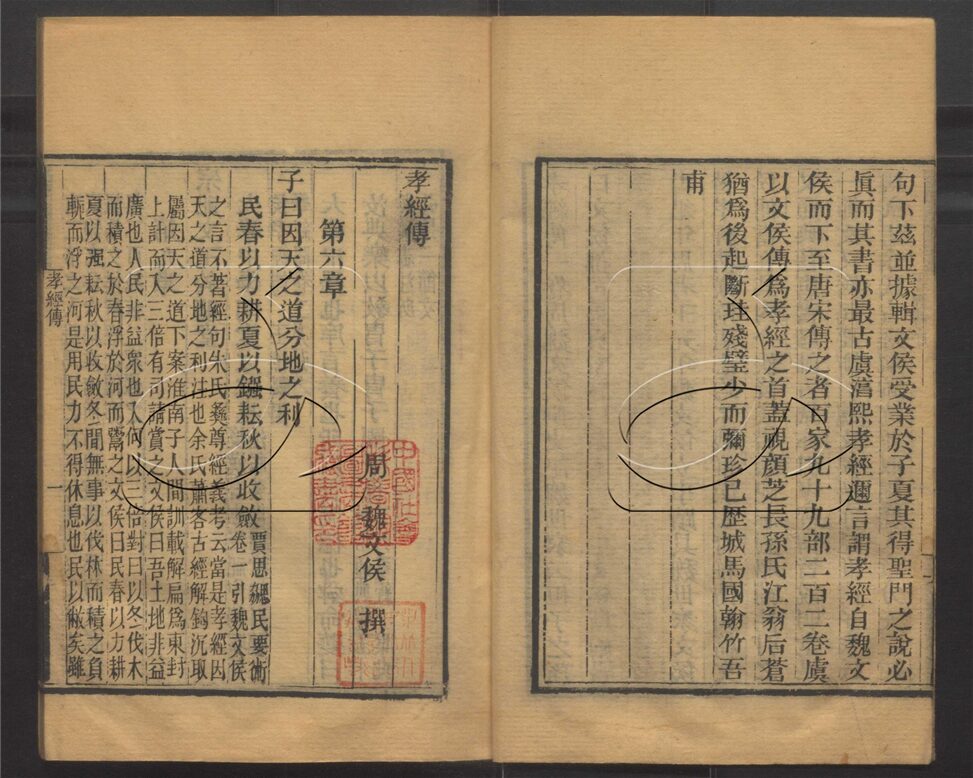 句下茲並據輯文侯受業於子夏其得聖門之說必
眞而其書亦最古虞滈熙孝經邇言謂孝經自魏文
侯而下至唐宋傳之者百家九十九部二百二卷虞
以文侯傳爲孝經之首蓋視顏芝長孫氏江翁后蒼
猶爲後起斷珪殘璧少而彌珍已歷城馬國翰竹吾
甫
孝經傳
周 魏文侯 撰
第六章
子曰因天之道分地之利
民春以力耕夏以鎾耘秋以收斂 賈思勰齊民要術
卷一引魏文侯
之言不著經句朱氏彝尊經義考云當是孝經因
天之道分地之利注也余氏蕭客古經解鈎沉取
屬因天之道下案淮南子人間訓載解扁爲東封
上計而入三倍有司請賞之文侯曰吾土地非益
廣也人民非益衆也入何以三倍對曰以冬伐木
而積之於春浮於河而鬻之文侯曰民春以力耕
夏以强耘秋以收斂冬間無事以伐林而積之負
軛而浮之河是用民力不得休息也民以敝矣雖
孝經傳
一